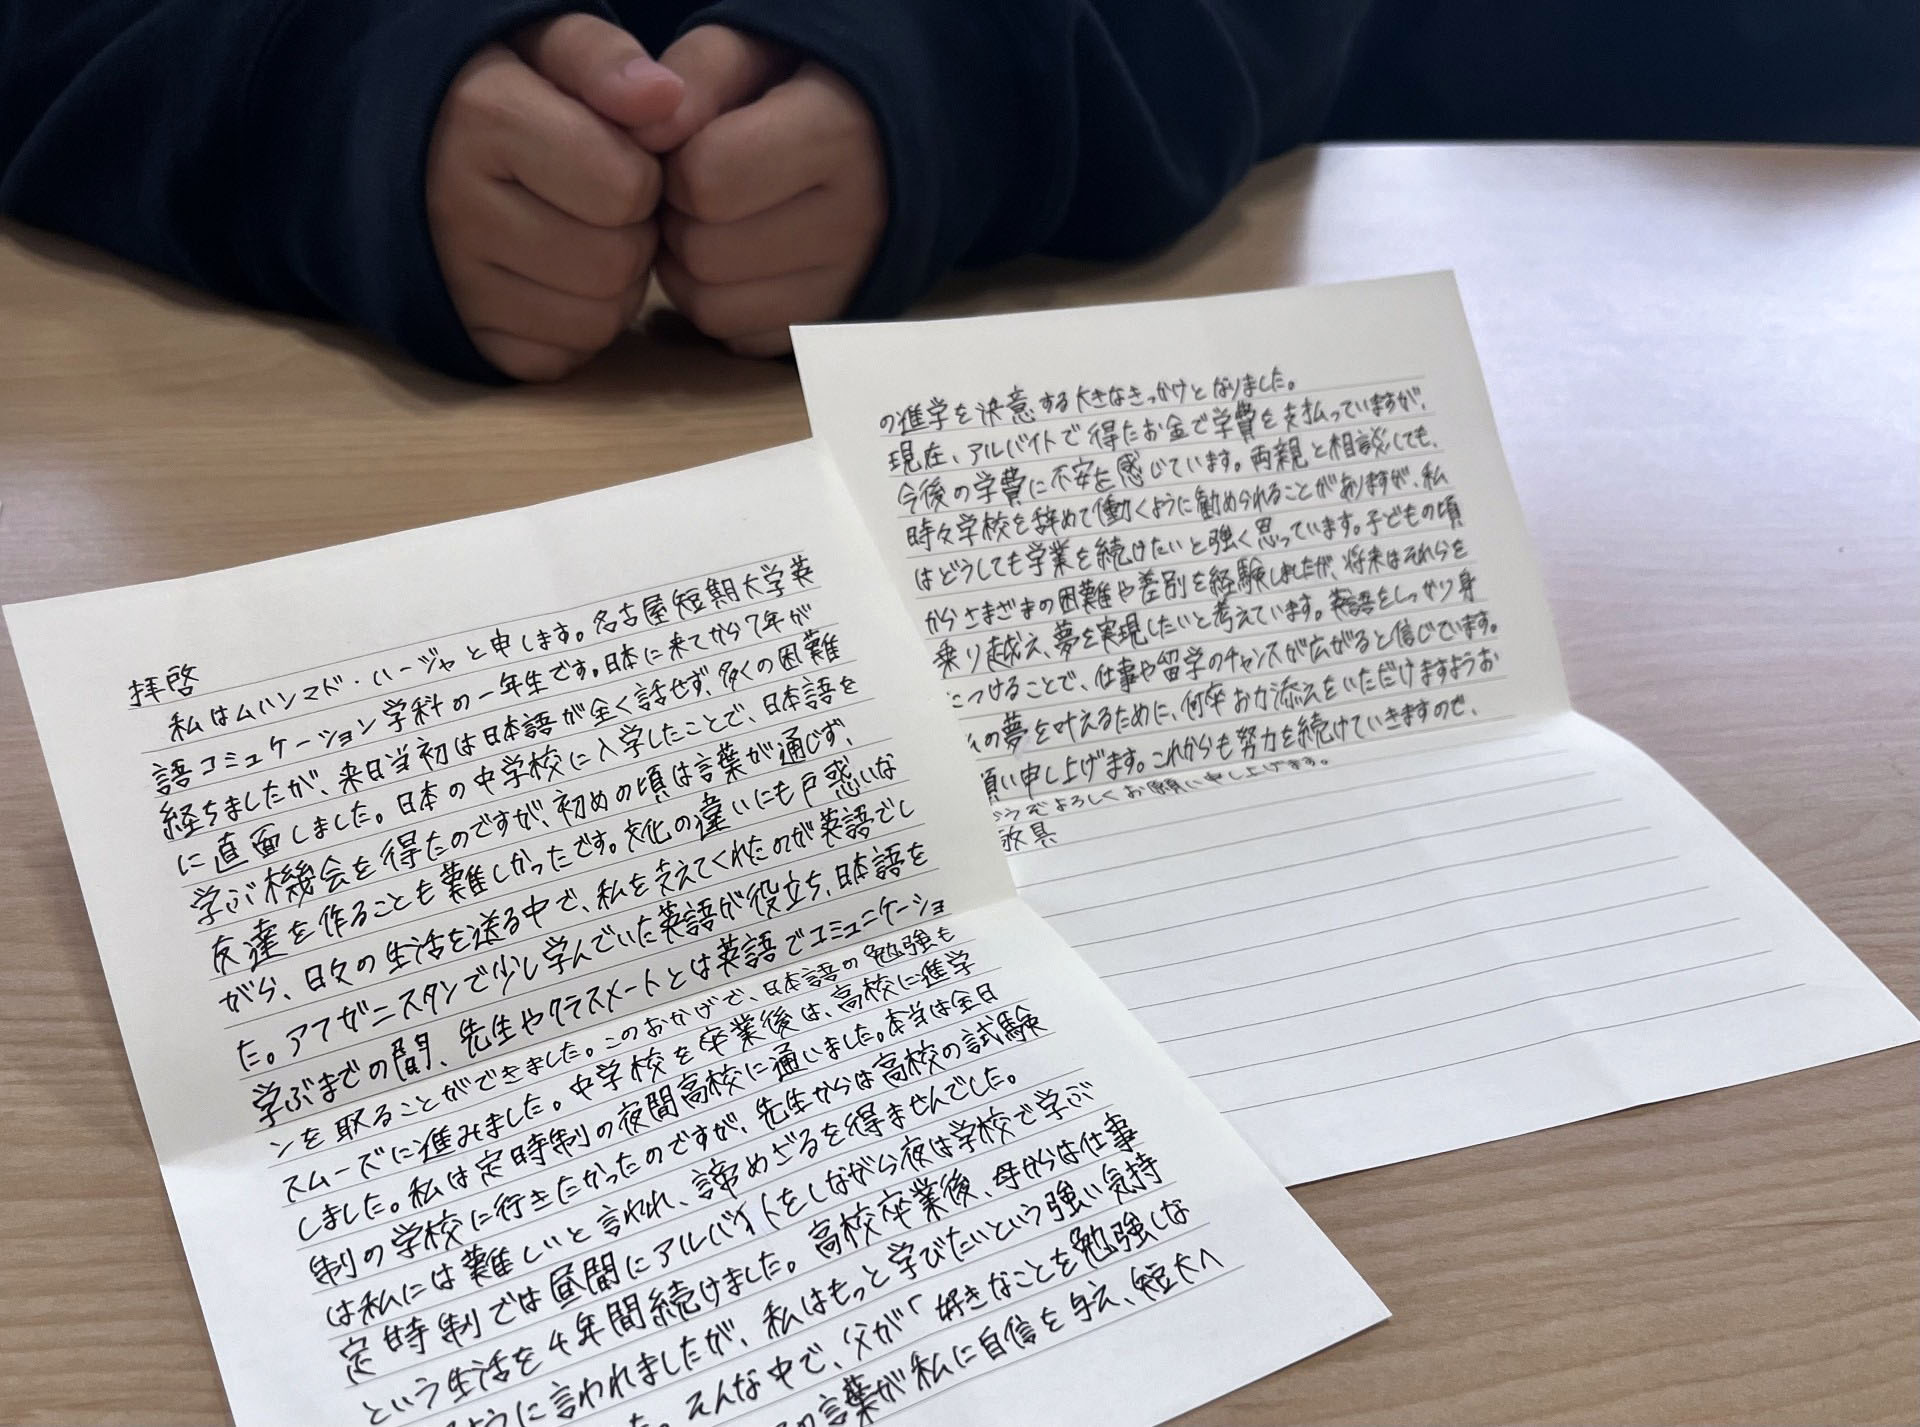 拝啓
私はムハンマド・ハージャと申します。名古屋短期大学英
語コミュケーション学科の一年生です。日本に来てから7年が
経ちましたが、来日当初は日本語が全く話せず、多くの困難
に直面しました。日本の中学校に入学したことで、日本語を
学ぶ機会を得たのですが、初めの頃は言葉が通じず、
友達を作ることも難しかったです。文化の違いにも戸惑いな
がら、日々の生活を送る中で、私を支えてくれたのが英語でし
た。アフガニスタンで少し学んでいた英語が役立ち、日本語を
学ぶまでの間、先生やクラスメートとは英語でコミュニケーショ
ンを取ることができました。このおかげで、日本語の勉強も
スムーズに進みました。中学校を卒業後は、高校に進学
しました。私は定時制の夜間高校に通いました。本当は全日
制の学校に行きたかったのですが、先生からは高校の試験
は私には難しいと言われ、諦めざるを得ませんでした。
定時制では昼間にアルバイトをしながら夜は学校で学ぶ
という生活を4年間続けました。高校卒業後、母からは仕事
ように言われましたが、私はもっと学びたいという強い気持
た。そんな中で、父が「好きなことを勉強しな
の言葉が私に自信を与え、短大へ
の進学を決意する大きなきっかけとなりました。
現在、アルバイトで得たお金で学費を支払っていますが、
今後の学費に不安を感じています。両親と相談しても、
時々学校を辞めて働くように勧められることがありますが、私
はどうしても学業を続けたいと強く思っています。子どもの頃
からさまざまの困難や差別を経験しましたが、将来はそれらを
乗り越え、夢を実現したいと考えています。英語をしっかり身
につけることで、仕事や留学のチャンスが広がると信じています。
の夢を叶えるために、何卒お力添えをいただけますようお
願い申し上げます。これからも努力を続けていきますので、
どうぞよろしくお願い申し上げます。
敬具